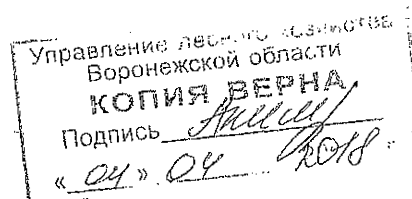 Управление лесного хозяйства
Воронежской области
КОПИЯ ВЕРНА
Подпись
« 04 » 04 2018 г